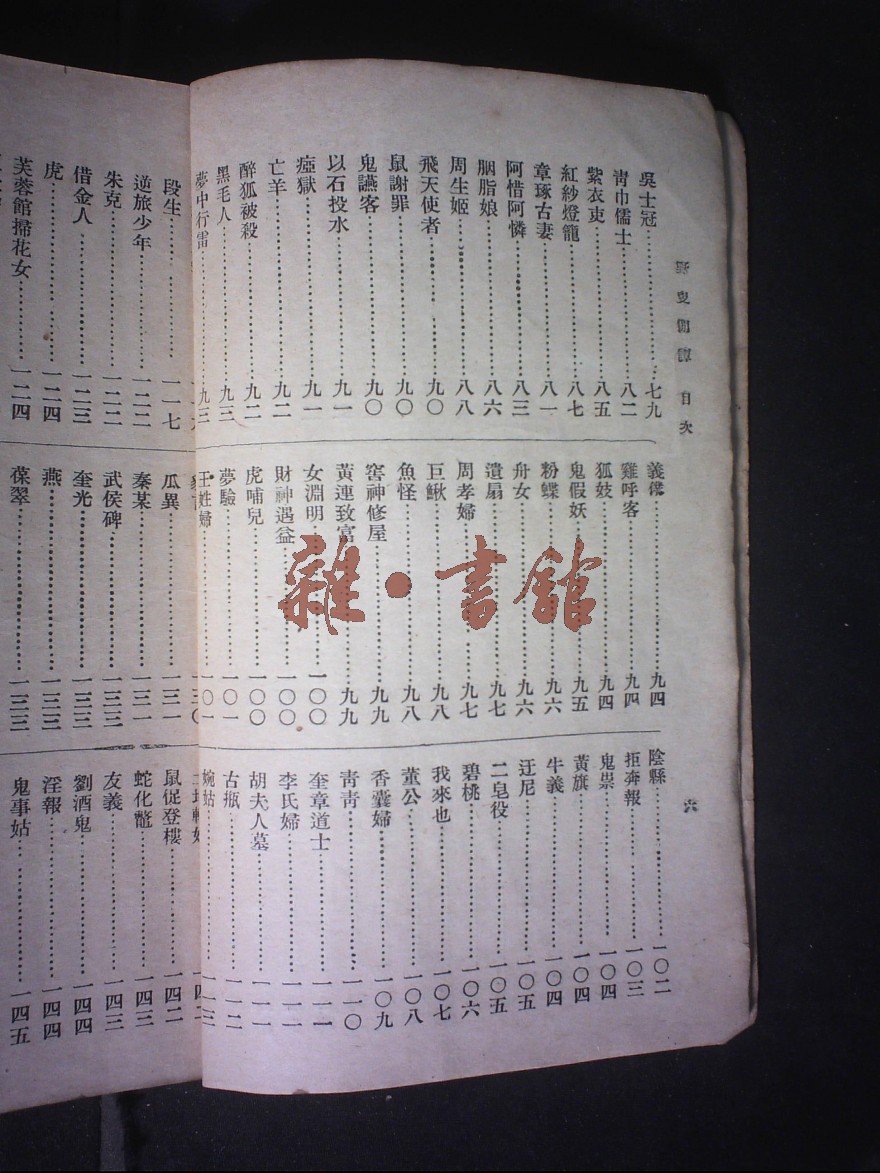 目次
六
吳士冠 七九
靑巾儒士 八二
紫衣吏 八五
紅紗燈籠 八七
章琢古妻 八一
阿惜阿憐 八三
胭脂娘 八六
周生姬 八八
飛天使者 九〇
鼠謝罪 九〇
鬼讌客 九〇
以石投水 九一
瘞獄 九一
亡羊 九二
醉狐被殺 九二
黑毛人 九三
夢中行雷 九三
義僕 九四
雞呼客 九四
狐妓 九四
鬼假妖 九五
粉蝶 九六
舟女 九六
遺扇 九七
周孝婦 九七
巨鰍 九八
魚怪 九八
窖神修屋 九九
黃連致富 九九
女淵明 一〇〇
財神遇益 一〇〇
虎哺兒 一〇〇
夢驗 一〇一
王姓婦 一〇一
陰縣 一〇二
拒奔報 一〇三
鬼祟 一〇四
黃旗 一〇四
牛義 一〇四
迂尼 一〇五
二皂役 一〇五
碧桃 一〇六
我來也 一〇七
董公 一〇八
香囊婦 一〇九
靑靑 一一〇
奎章道士 一一一
李氏婦 一一一
胡夫人墓 一一一
古瓶 一一二
婉姑 一一三
段生 一一七
逆旅少年 一二二
朱克 一二二
借金人 一二三
虎 一二四
芙蓉館掃花女 一二四
瓜異 一三一
秦某 一三一
武侯碑 一三三
奎光 一三三
燕 一三三
葆翠 一三三
鼠促登樓 一四二
蛇化鼈 一四三
友義 一四三
劉酒鬼 一四四
淫報 一四四
鬼事姑 一四五
雜·書館